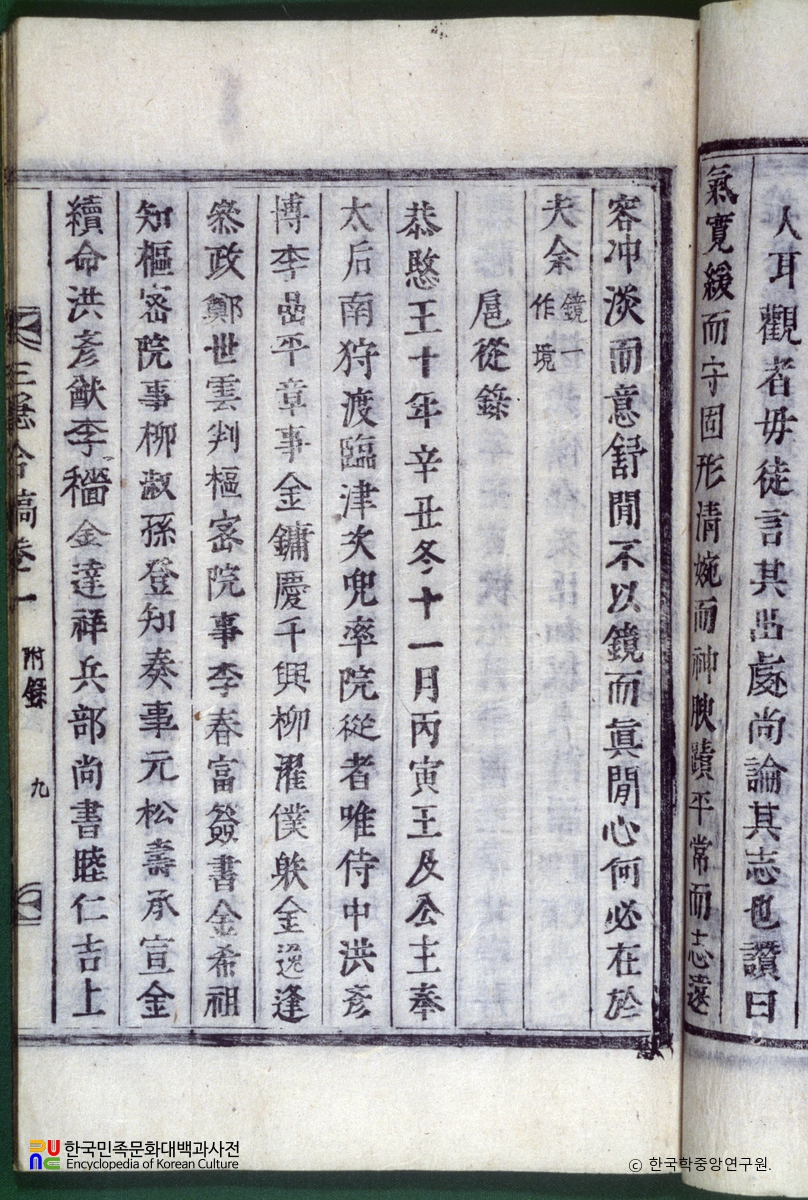 人耳觀者毋徒言其出處尚論其志也讚曰
氣寬緩而守固形淸婉而神腴蹟平常而志遠
容冲淡而意舒閒不以鏡而眞閒心何必在於
夫余鏡一作境
扈從錄
恭愍王十年辛丑冬十一月丙寅王及公主奉
太后南狩渡臨津次兜率院從者唯侍中洪彦
博李嵒平章事金鏞慶千興柳濯僕射金逸逢
叅政鄭世雲判樞密院事李春富簽書金希祖
知樞密院事柳淑孫登知奏事元松壽承宣金
續命洪彦猷李穡金達祥兵部尚書睦仁吉上
三隱合稿卷一 附錄 九
한국민족문화대백과사전
Encyclopedia of Korean Culture
© 한국학중앙연구원.